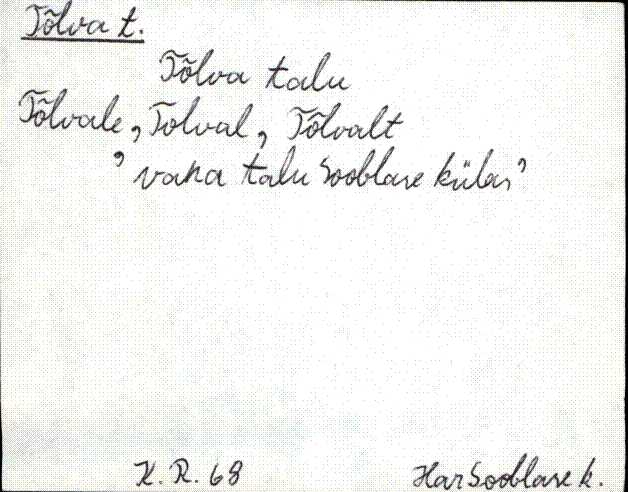 Tõlva t.
Tõlva talu
Tõlvale, Tolval, Tõlvalt
’vana talu Sooblase külas’
K. R. 68
Har Sooblase k.